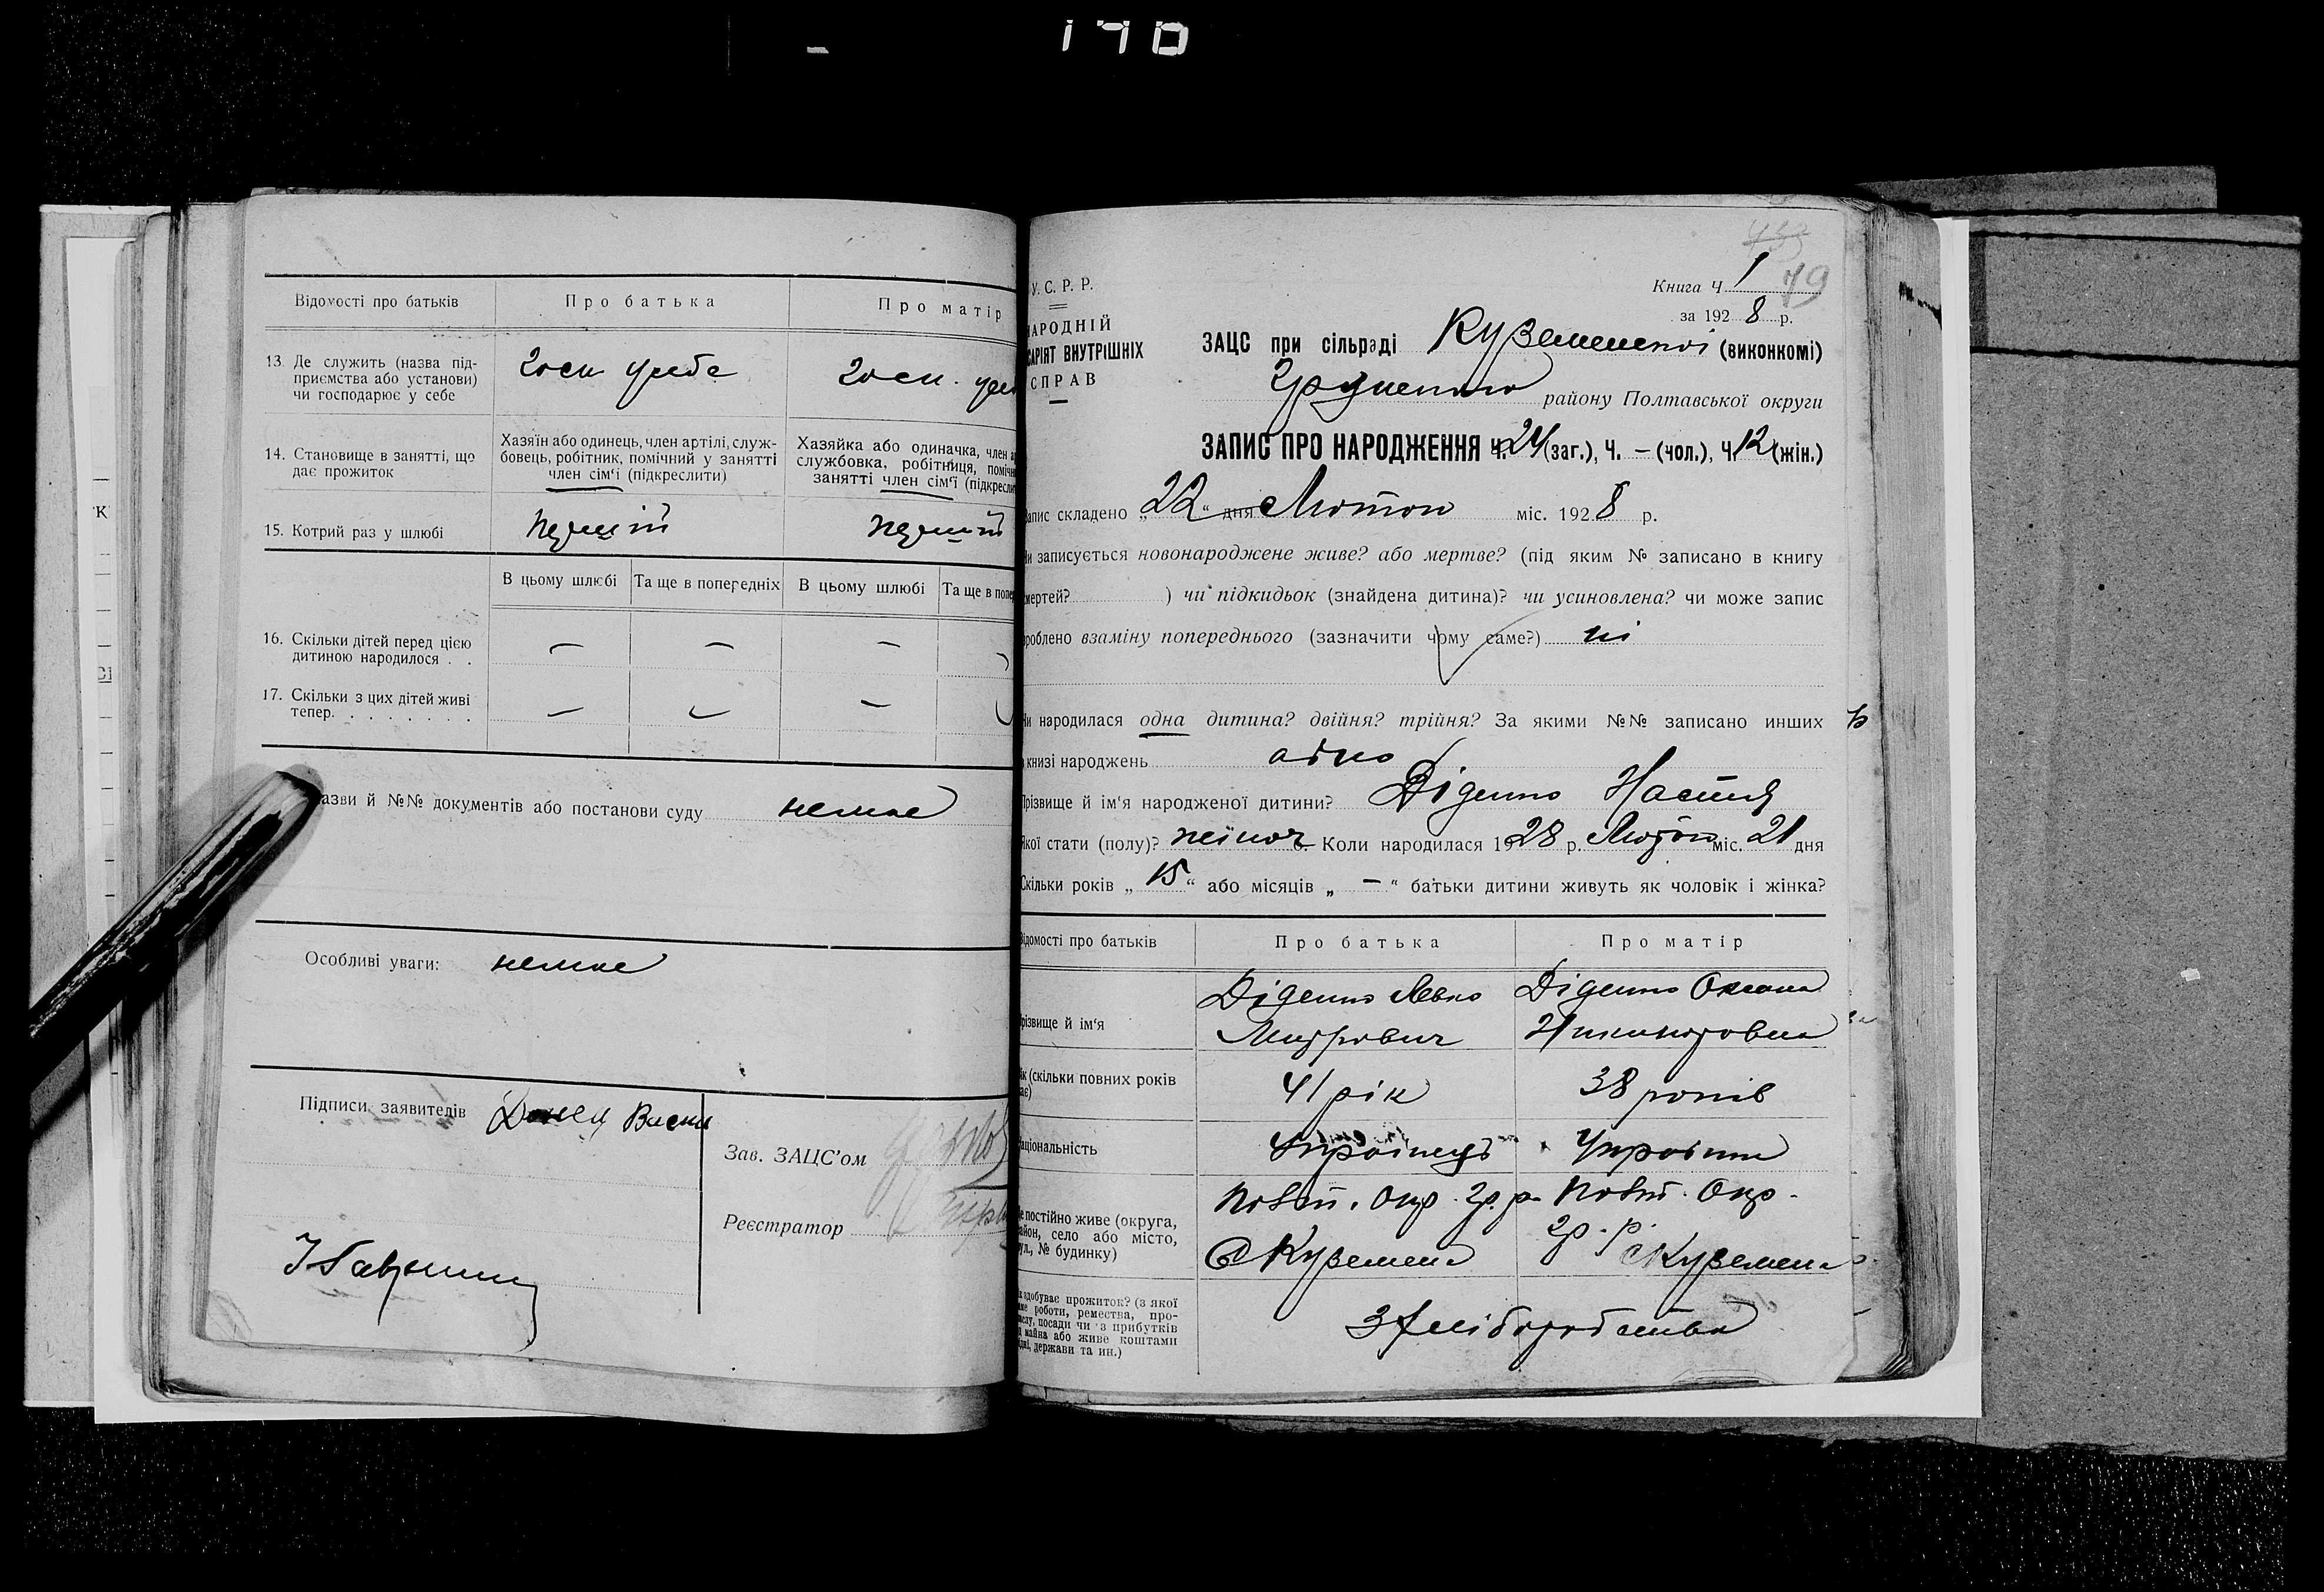 170
Відомості про батьків
Про батька
Про матір
13. Де служить (назва під-
приємства або установи)
чи господарює у себе
госп. у себе
госп. у
14. Становище в занятті, що
дає прожиток
Хазяїн або одинець, член артілі, служ-
бовець, робітник, помічний у занятті
член сім'ї (підкреслити)
Хазяйка або одиначка, член
службовка, робітниця,
занятті член сім'ї
15. Котрий раз у шлюбі
перший
перший
В цьому шлюбі
Та ще в попередніх
В цьому шлюбі
Та ще в
16. Скільки дітей перед цією
дитиною народилося . .
— — —
17. Скільки з цих дітей живі
тепер. . . . . . . .
— — —
азви й №№ документів або постанови суду немає
Особливі уваги: немає
Підписи заявителів
Зав. ЗАЦС'ом
Реєстратор
79
У. С. Р. Р.
Книга Ч 1
за 1928 р.
АРОДНІЙ
САРІЯТ ВНУТРІШНІХ
СПРАВ
ЗАЦС при сільраді Куземенської (виконкомі)
Грунського району Полтавської округи
ЗАПИС ПРО НАРОДЖЕННЯ Ч. 24 (заг.), Ч. — (чол.), Ч. 12 (жін.)
апис складено „22“ дня Лютого міс. 1928 р.
и записується новонароджене живе? або мертве? (під яким № записано в книгу
мертей? ) чи підкидьок (знайдена дитина)? чи усиновлена? чи може запис
роблено взаміну попереднього (зазначити чому саме?) ні
и народилася одна дитина? двійня? трійня? За якими №№ записано инших
книзі народжень одно
Прізвище й ім'я народженої дитини? Діденко Настя
Якої стати (полу)? жіноч. Коли народилася 1928 р. Лютого міс. 21 дня
Скільки років „15“ або місяців „—“ батьки дитини живуть як чоловік і жінка?
ідомості про батьків
Про батька
Про матір
різвище й ім'я
Діденко Левко
Митрович
Діденко Оксана
Никифоровна
ік (скільки повних років
ає)
41 рік
38 років
аціональність
Українець
Українка
е постійно живе (округа,
айон, село або місто,
ул., № будинку)
Полт. Окр. Гр. р.
с Куземени
Полт. Окр.
Гр. р.
с Куземени
здобуває прожиток? (з якої
ме роботи, ремества, про-
ислу, посади чи з прибутків
д майна або живе коштами
ідні, держави та ин.)
З хліборобства